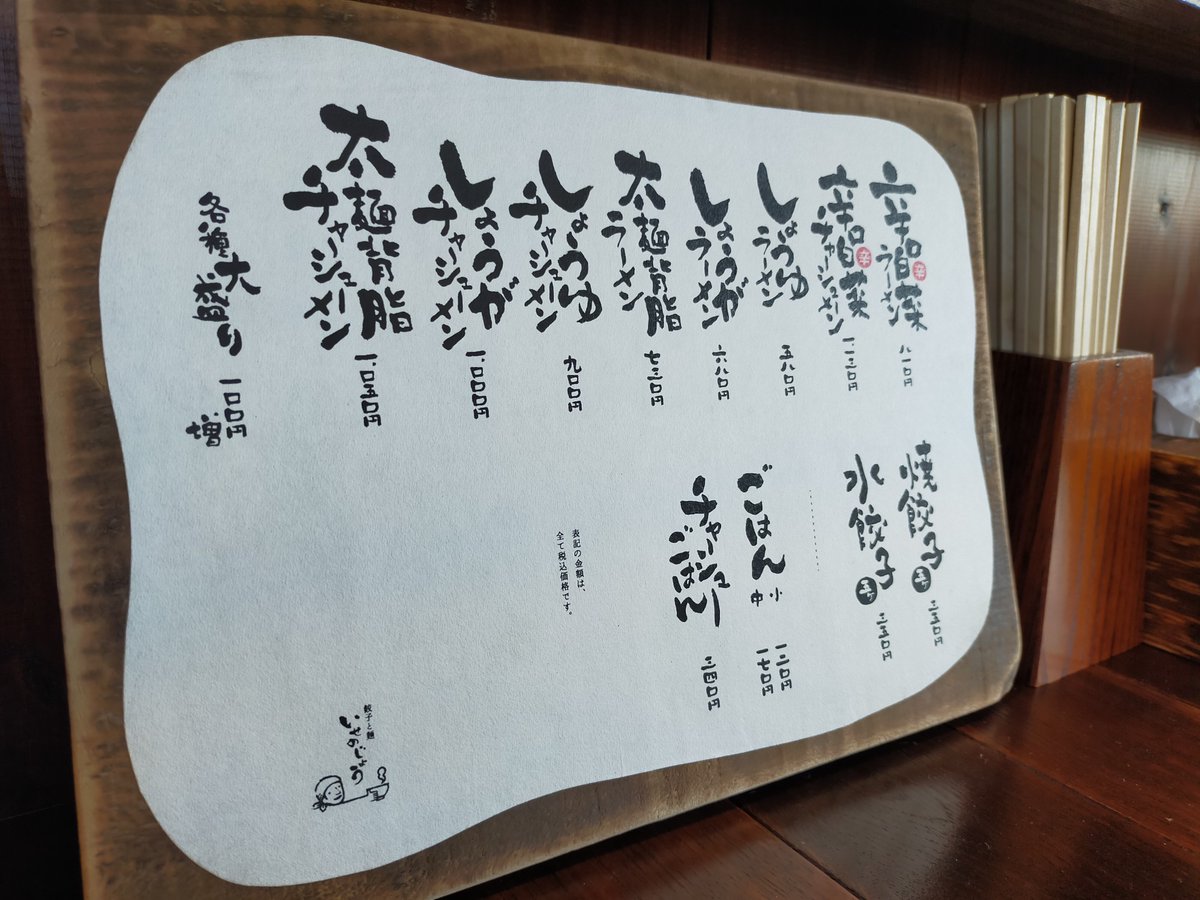 辛口白菜ラーメン 辛 八一〇円
辛口白菜チャーシューメン 辛 一、一三〇円
しょうゆラーメン 五八〇円
しょうがラーメン 六八〇円
太麺背脂ラーメン 七三〇円
しょうゆチャーシューメン 九〇〇円
しょうがチャーシューメン 一、〇〇〇円
太麺背脂チャーシューメン 一、〇五〇円
各種大盛り 一〇〇円増
焼餃子 五ヶ 三五〇円
水餃子 五ヶ 三五〇円
ごはん 小 一二〇円
中 一七〇円
チャーシューごはん 三四〇円
表記の金額は、
全て税込価格です。
餃子と麺
いせのじょう